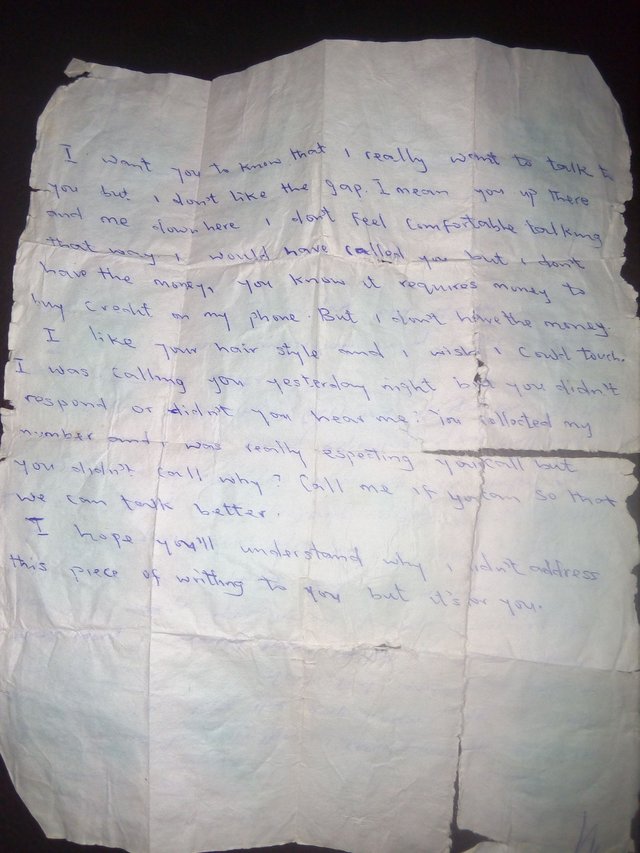 I want you to know that I really want to talk to
you but i don't like the gap. I mean you up There
and me down here i don't feel comfortable talking
that way i would have called you but i don't
have the money, you know it requires money to
buy credit on my phone. But i don't have the money.
I like your hair style and i wish i could touch.
I was calling you yesterday night but you didn't
respond or didn't you hear me? You collected my
number and i was really especting you call but
you didn't call why? Call me if you can so that
we can talk better.
I hope you'll understand why i didn't address
this piece of writting to you but it's for you.